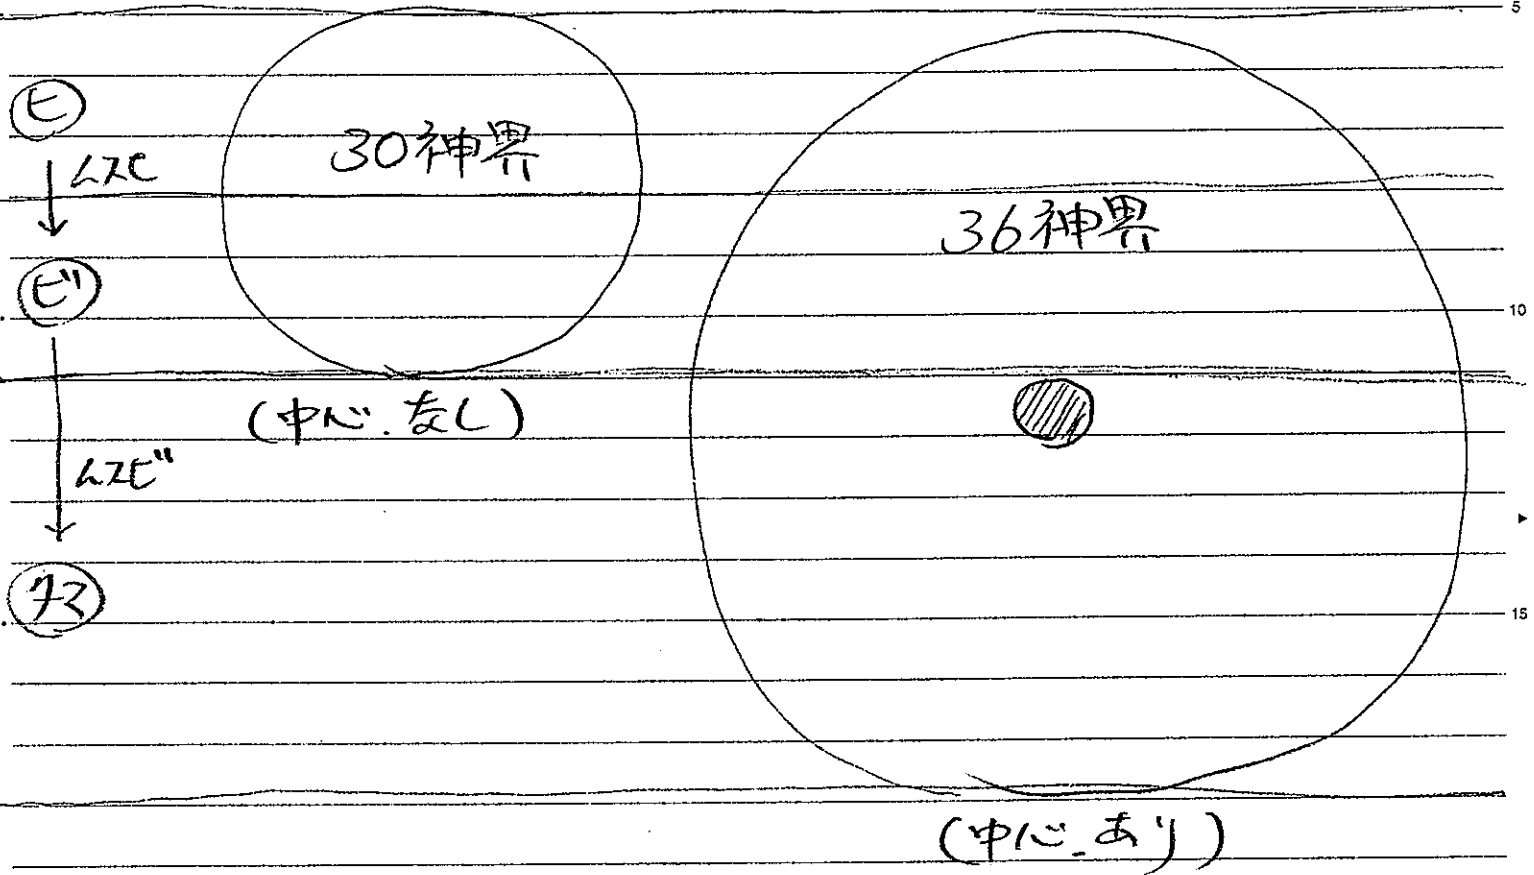 5
ヒ
ムスヒ
ビ
ムスビ
タマ
30神界
(中心.なし)
36神界
(中心.あり)
10
15